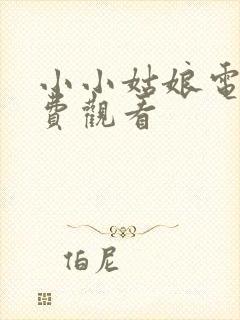 小小姑娘電
費觀看
伯尼